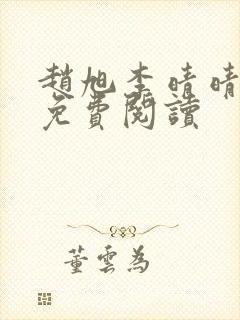 趙旭李晴晴
免費閱讀
董雲為